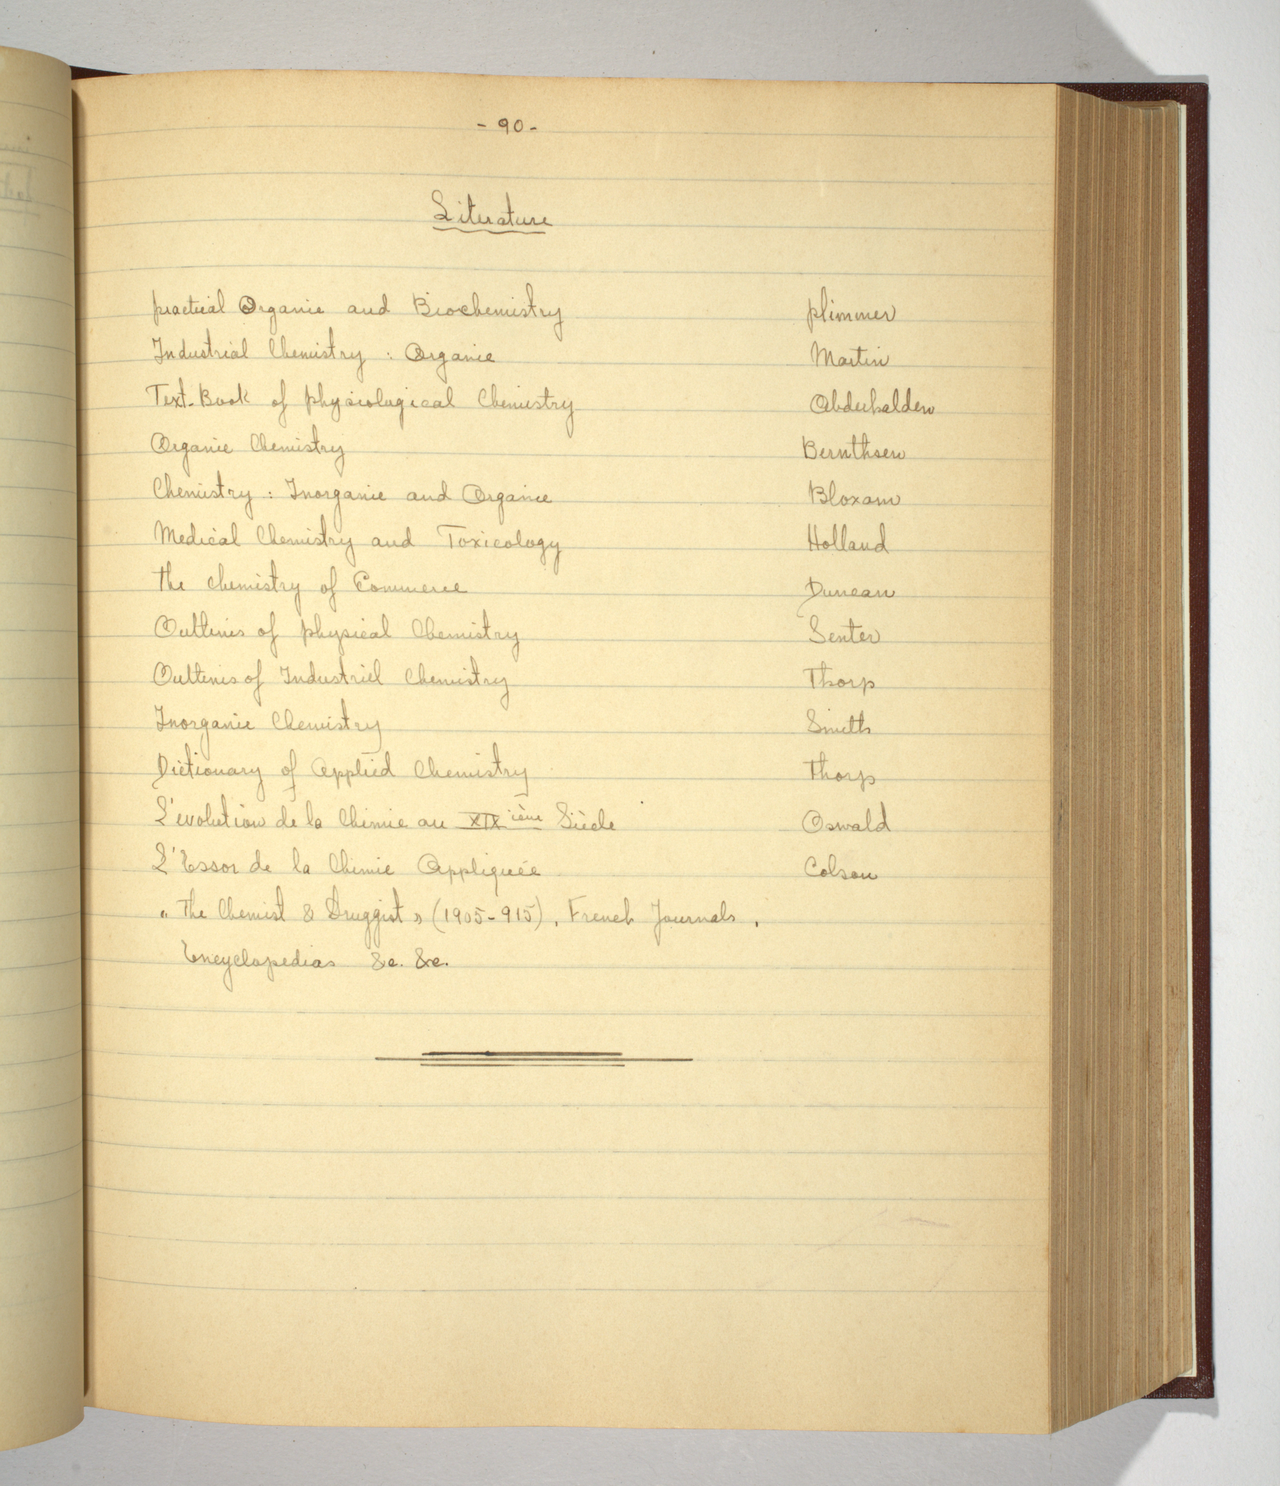 - 90 -
Literature
practical Organic and Biochemistry plimmer
Industrial Chemistry : Organic Martin
Text-Book of physiological Chemistry Abderhalden
Organic Chemistry Bernthsen
Chemistry : Inorganic and Organic Bloxam
Medical Chemistry and Toxicology Holland
The chemistry of Commerce Duncan
Outlines of physical Chemistry Senter
Outlines of Industriel Chemistry Thorp
Inorganic Chemistry Smith
Dictionary of Applied Chemistry Thorp
L'evolution de la Chimie au XIX ième Siècle Oswald
L'Essor de la Chimie Appliquée Colson
"The Chemist & Druggist" (1905-915), French Journals,
Encyclopedias &c. &c.